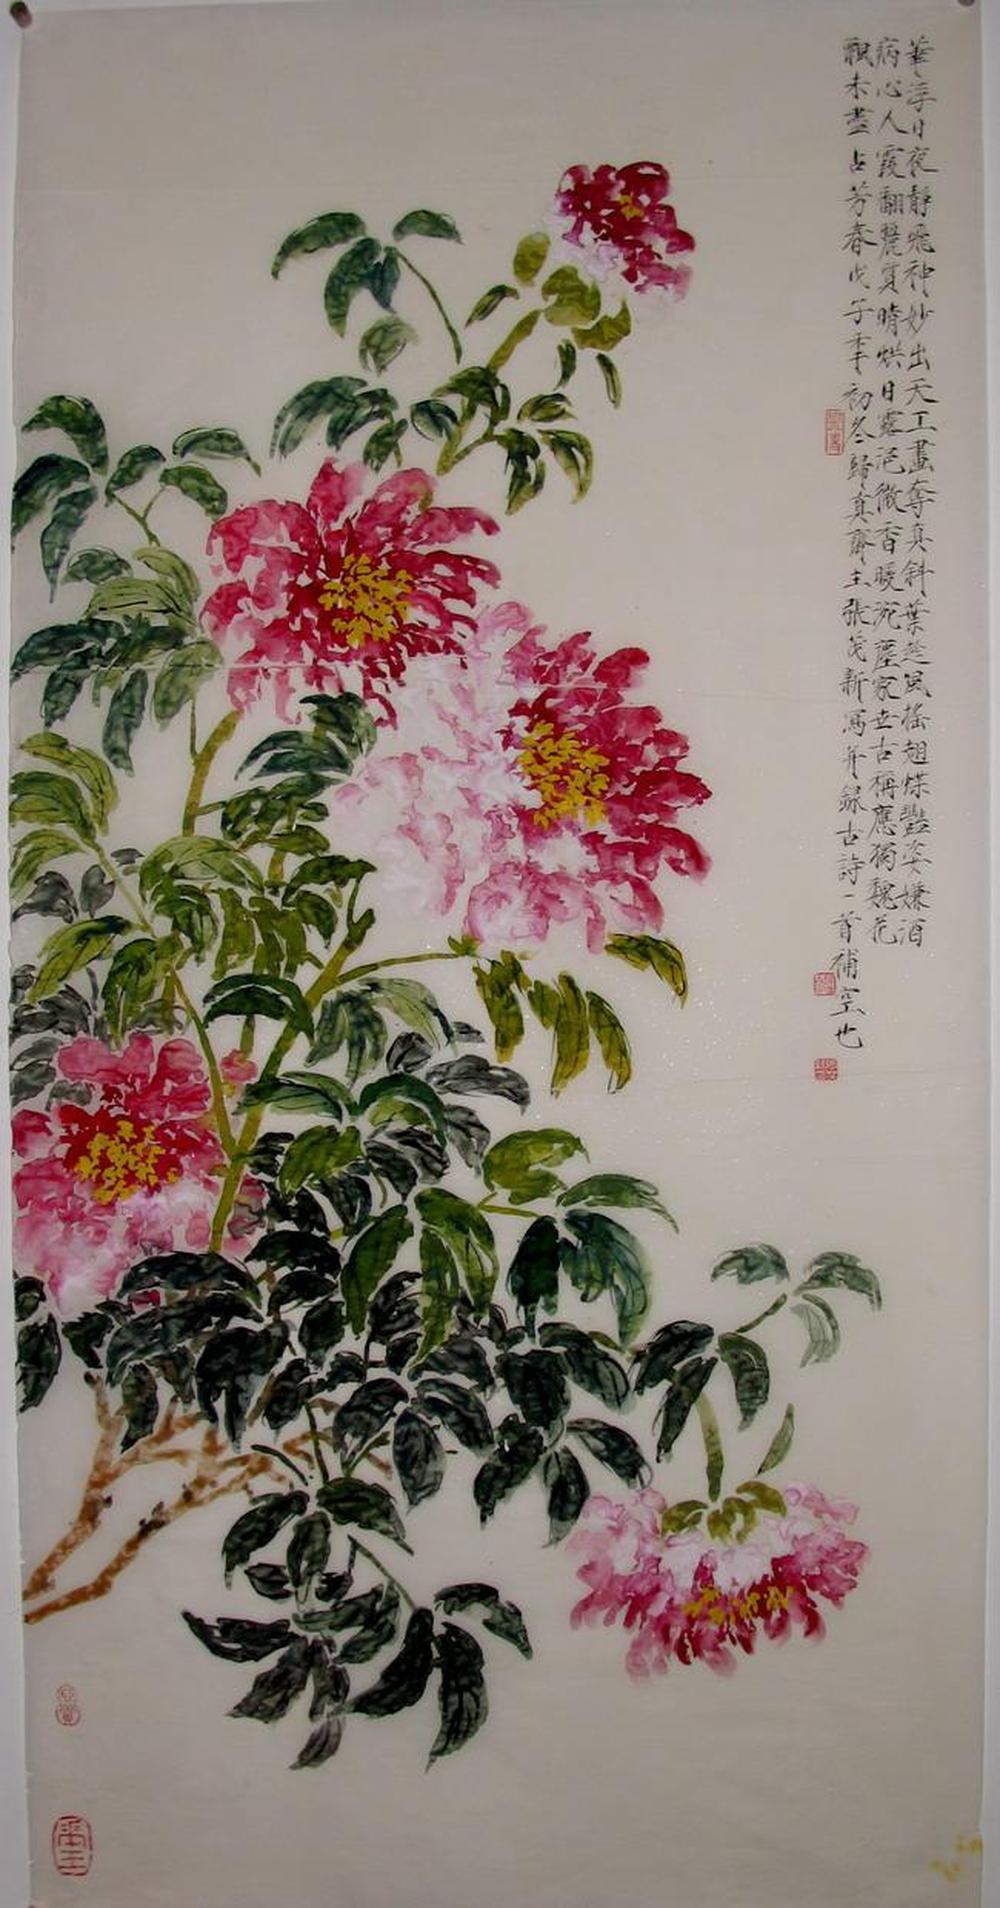 華淳日夜靜飛神妙出天工畫奪真斜葉迎風搖翅煤豔姿嫌酒
病心人霞翻麗真晴烘日露浥微香暖沉塵家世古稱應獨魏花
飄未盡占芳春戊子季初冬歸真齋主張茂新寫并録古詩一首補空也